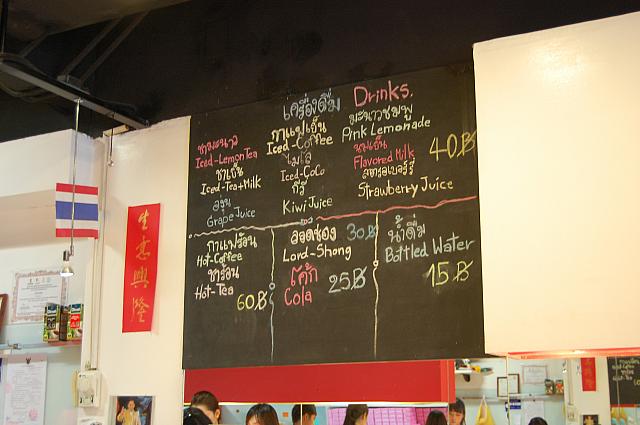 เครื่องดื่ม Drinks.
ชามะนาว
Iced-Lemon Tea
ชาเย็น
Iced-Tea+Milk
องุ่น
Grape Juice
กาแฟเย็น
Iced-Coffee
ไมโล
Iced-CoCo
กีวี่
Kiwi Juice
มะนาวชมพู
Pink Lemonade
นมเย็น
Flavored Milk
สตรอเบอร์รี่
Strawberry Juice
40฿
กาแฟร้อน
Hot-Coffee
ชาร้อน
Hot-Tea
60฿
ลอดช่อง 30฿
Lord-Shong
โค้ก
Cola 25฿
น้ำดื่ม
Bottled Water
15฿
生意興隆